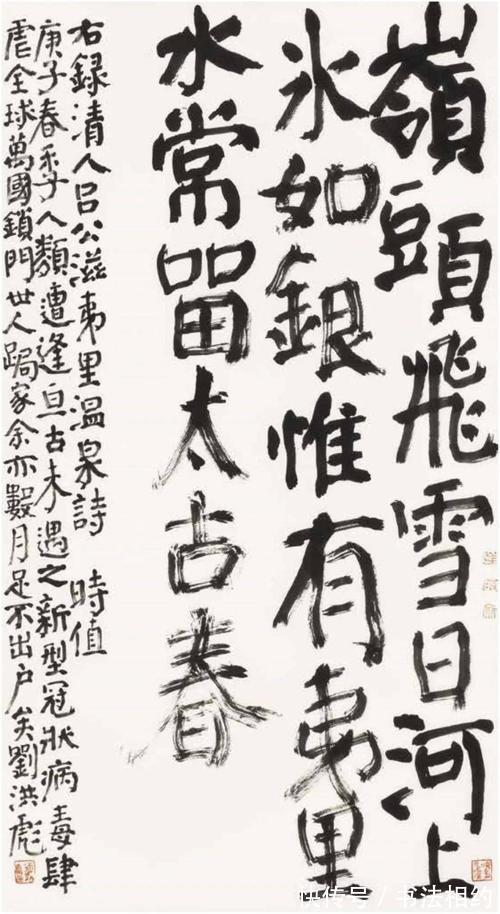 嶺頭飛雪日河上
氷如銀惟有夷里
水常留太古春
右録清人吕公滋夷里温泉詩 時值
庚子春季人類遭逢亘古未遇之新型冠狀病毒肆
虐全球萬國鎖門世人跼家余亦數月足不出户矣劉洪彪
快传号 / 书法相约